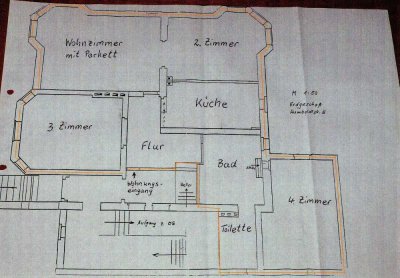 Wohnzimmer
mit Parkett
2. Zimmer
M 1:50
Erdgeschoß
Küche
3 Zimmer
Flur
Bad
Wohnungs-
eingang
4 Zimmer
Toilette
Aufgang z. OG